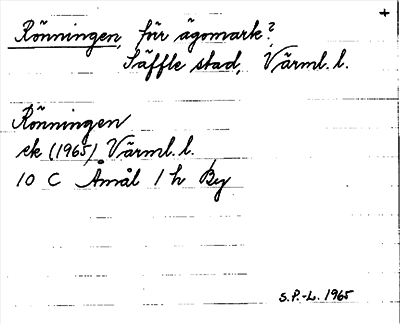 +
Rönningen, för ägomark?
Säffle stad, Värml. l.
Rönningen
ek (1965) Värml. l.
10 C Åmål 1 h By
S.P.-L. 1965